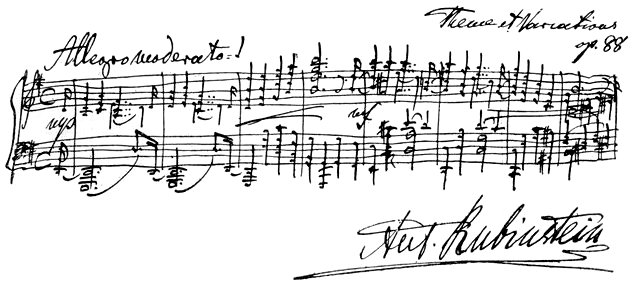 Theme et Variations
op. 88
Allegro moderato.
mf
Ant. Rubinstein